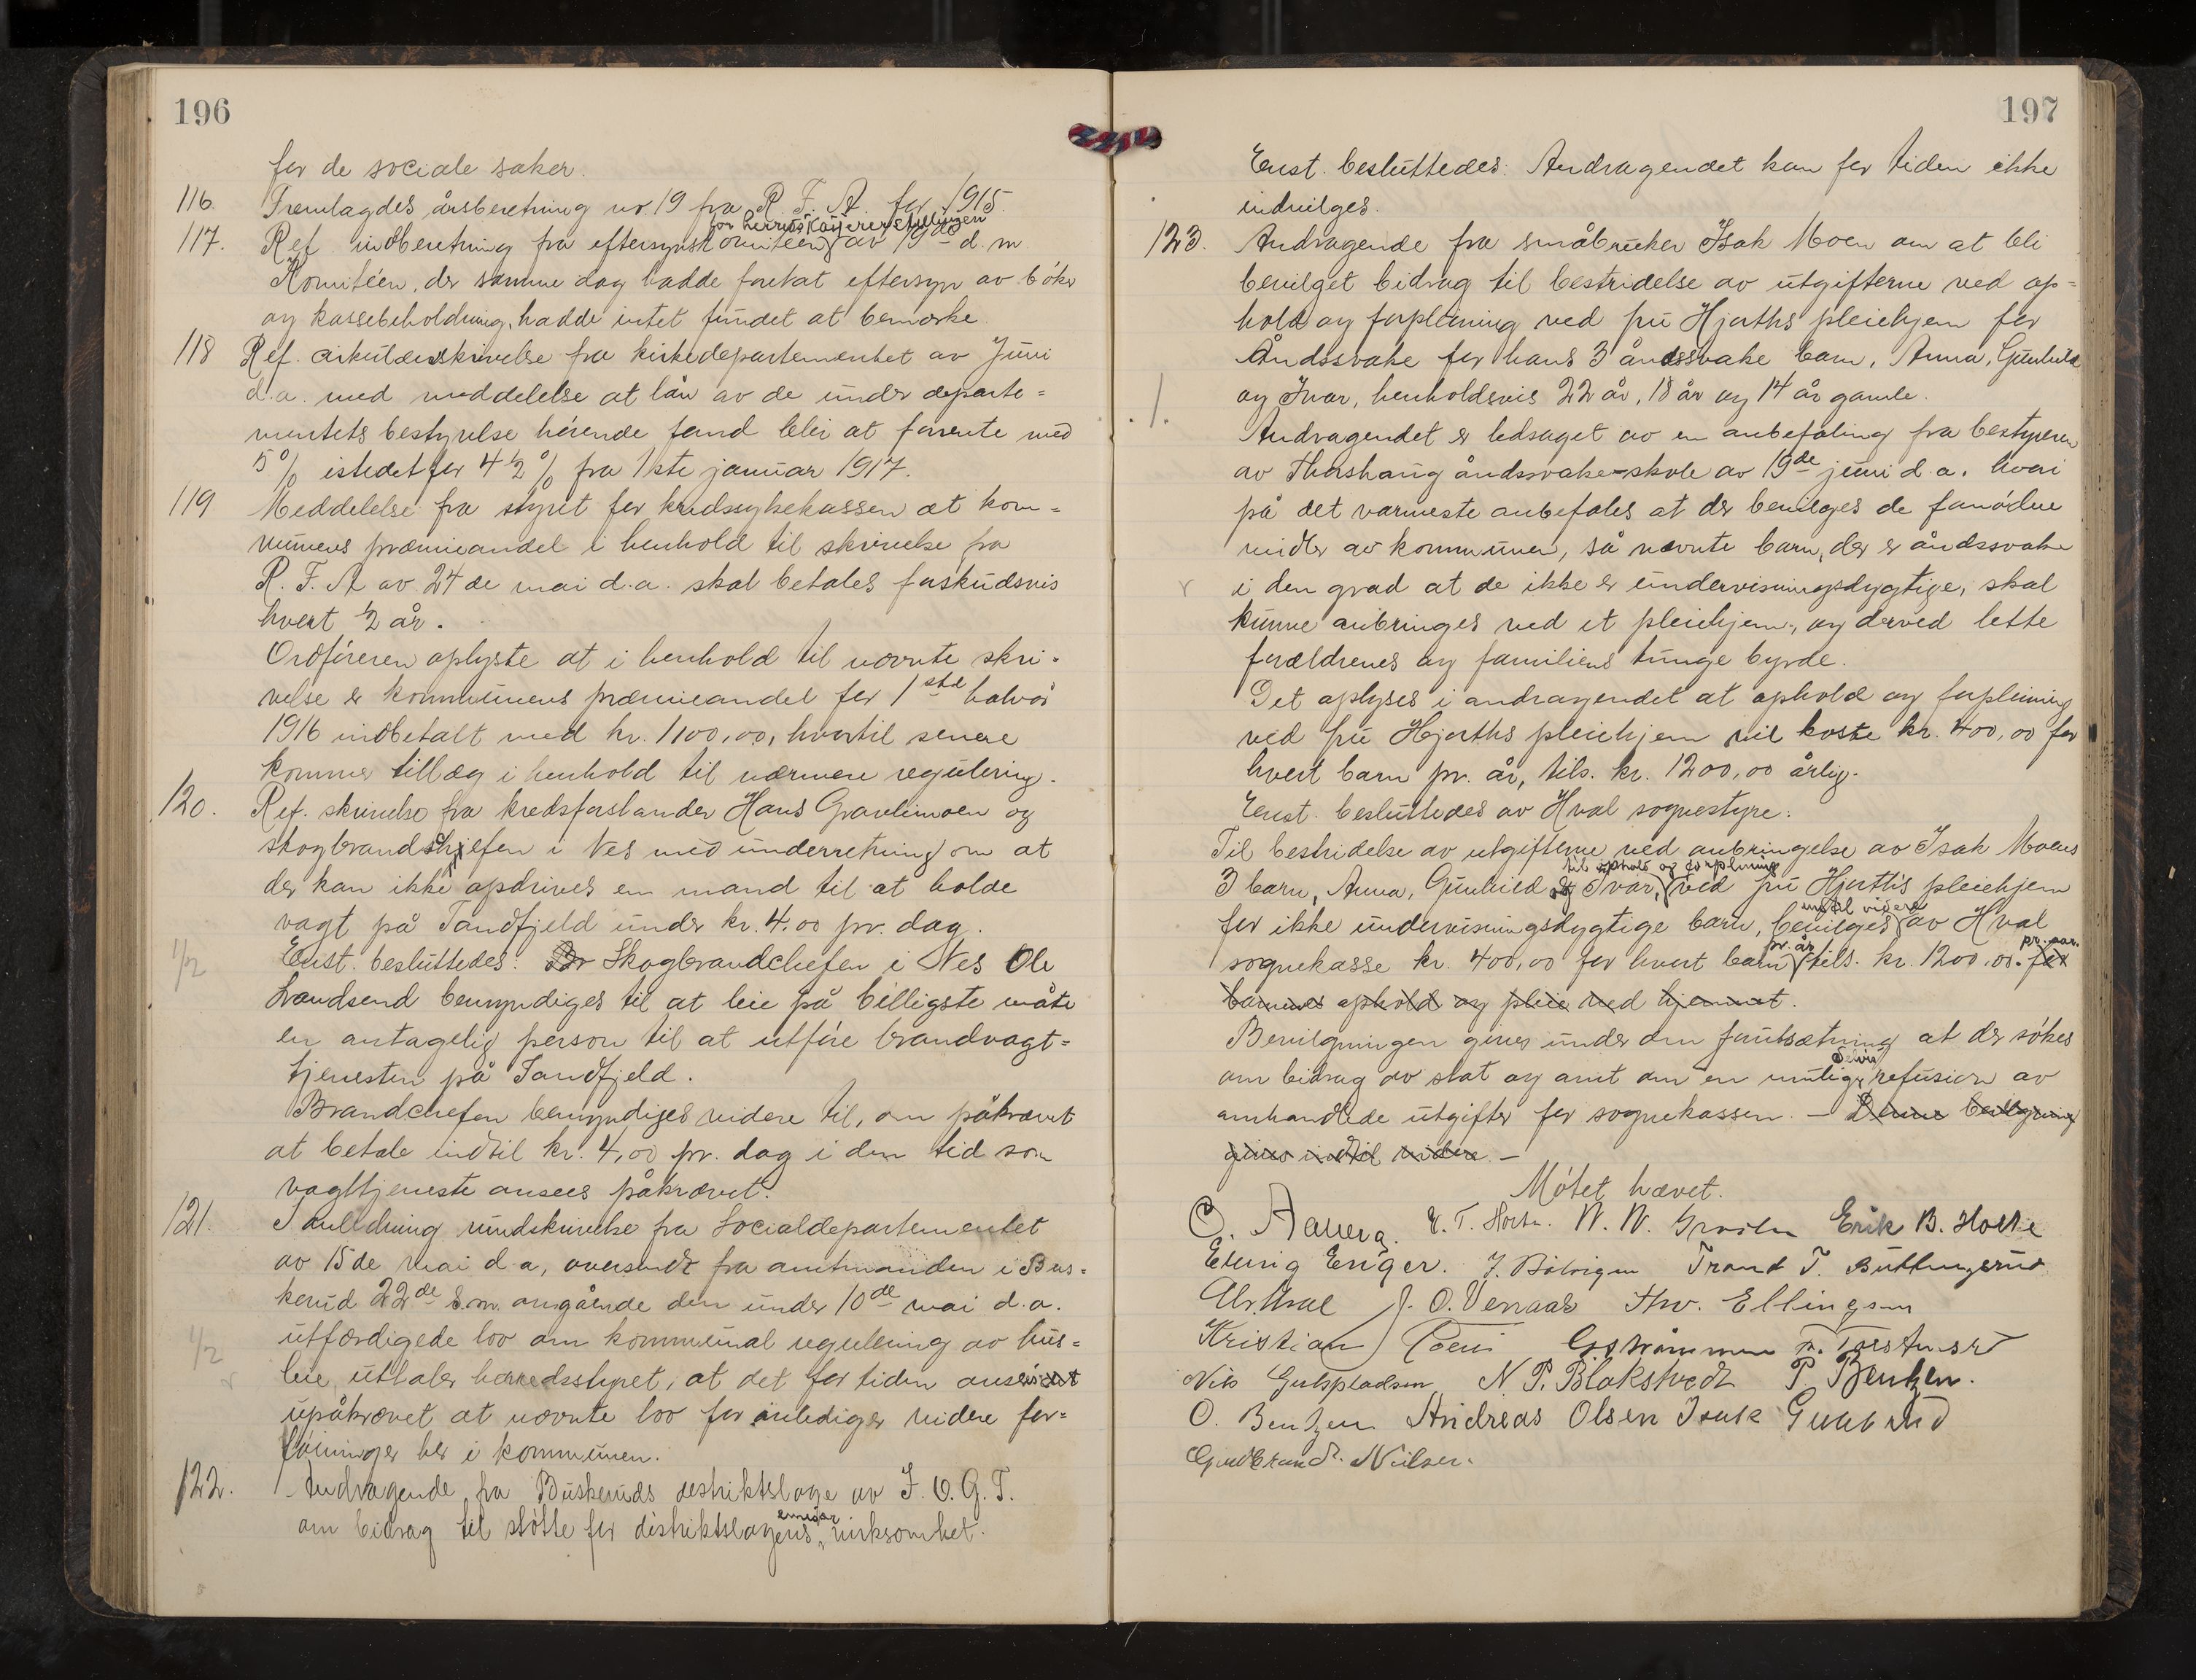 196
for de sociale saker.
116. Fremlagdes årsberetning nr. 19 fra R. F. A. for 1915.
for herredskasjererstillingen
117. Ref. indberetning fra eftersynskomiteen av 19de d.m.
Komitéen, der samme dag hadde foretat eftersyn av bøker
og kassebeholdning, hadde intet fundet at bemærke
118 Ref. cirkulærskrivelse fra kirkedepartementet av Juni
d.a. med meddelelse at lån av de under departe=
mentets bestyrelse hørende fond blir at forrente med
5 % istedetfor 4 1/2 % fra 1ste januar 1917.
119 Meddelelse fra styret for kredssykekassen at kom=
munens præmieandel i henhold til skrivelse fra
R. F. A av 24de mai d.a. skal betales forskudsvis
hvert 1/2 år.
Ordføreren oplyste at i henhold til nævnte skri-
velse er kommunens præmieandel for 1ste halvår
1916 indbetalt med kr. 1100,00, hvortil senere
kommer tillæg i henhold til nærmere regulering.
120. Ref. skrivelse fra kredsforstander Hans Gravlimoen og
skogbrandschefen i Nes med underretning om at
der kan ikke opdrives en mand til at holde
vagt på Tandfjeld under kr. 4.00 pr. dag.
1/2 Enst. besluttedes: Skogbrandchefen i Nes Ole
Trændsend bemyndiges til at leie på billigste måte
en antagelig person til at utføre brandvagt=
tjenesten på Tandfjeld.
Brandchefen bemyndiges videre til, om påkrævet
at betale indtil kr. 4,00 pr. dag i den tid som
vagttjeneste ansees påkrævet.
121. I anledning rundskrivelse fra Socialdepartementet
av 15de mai d.a, oversendt fra amtmanden i Bus=
kerud 22de s.m. angående den under 10de mai d.a.
utfærdigede lov om kommunal regulering av hus=
1/2 leie uttaler herredsstyret, at det for tiden ansees
upåkrævet at nævnte lov foranlediger videre for=
føininger her i kommunen.
122. Andragende fra Buskeruds distriktsloge av I. O. G. T.
emissær
om bidrag til støtte for distriktslogens virksomhet.
197
Enst. besluttedes: Andragendet kan for tiden ikke
indvilges.
123. Andragende fra småbruker Isak Moen om at bli
bevilget bidrag til bestridelse av utgifterne ved op=
hold og forpleining ved fru Hjorths pleiehjem for
Åndssvake for hans 3 åndssvake barn, Anna, Gunhild
1. og Ivar, henholdsvis 22 år, 18 år og 14 år gamle.
Andragendet er ledsaget av en anbefaling fra bestyreren
av Thorshaug åndssvake-skole av 19de juni d.a. hvori
på det varmeste anbefales at der bevilges de fornødne
midler av kommunen, så nævnte barn, der er åndssvake
i den grad at de ikke er undervisningsdygtige, skal
kunne anbringes ved et pleiehjem, og derved lette
forældrenes og familiens tunge byrde.
Det oplyses i andragendet at ophold og forpleining
ved fru Hjorths pleiehjem vil koste kr. 400,00 for
hvert barn pr. år, tils. kr. 1200,00 årlig.
Enst. besluttedes av Hval sognestyre:
Til bestridelse av utgifterne ved anbringelse av Isak Moens
til ophold og forpleining
3 barn, Anna, Gunhild og Ivar, ved fru Hjorth's pleiehjem
indtil videre
for ikke undervisningsdygtige barn, bevilges av Hval
pr. år pr. aar.
sognekasse kr. 400,00 for hvert barn tils. kr. 1200,00. for
barnenes ophold og pleie ved hjemmet.
Bevilgningen gives under den forutsætning at der søkes
delvis
om bidrag av stat og amt om en mulig refusion av
omhandlede utgifter for sognekassen. — Denne bevilgning
gives indtil videre. —
Møtet hævet.
O. Aavera. E. T. Holte. N. N. Gravlin Erik B. Holte
Elling Enger. J. Bølvigen Trond T. Buttingsrud
J. O. Venaas Thv. Ellingsen
Kristian Roen
Nils Gulspladsen N P. Blakstvedt P. Bentzen.
O. Bentzen Andreas Olsen Isak Gulbrand
Gudbrand Nielsen.